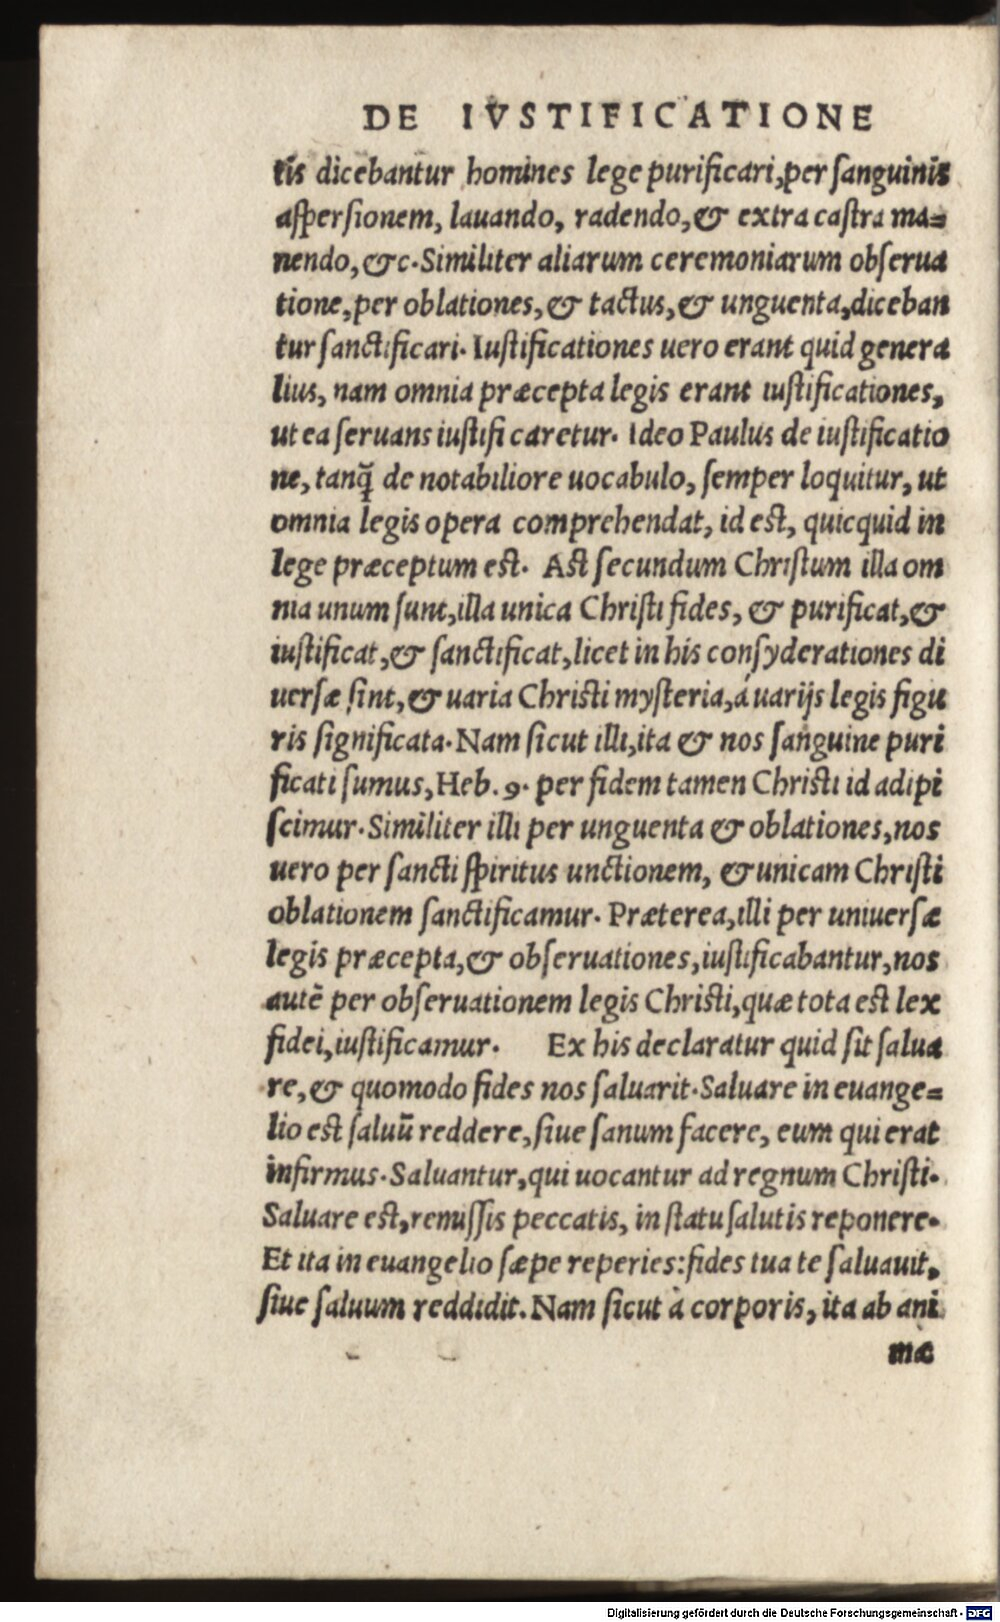 DE IVSTIFICATIONE
tis dicebantur homines lege purificari, per sanguinis
aspersionem, lauando, radendo, & extra castra ma=
nendo, &c. Similiter aliarum ceremoniarum obserua
tione, per oblationes, & tactus, & unguenta, diceban
tur sanctificari. Iustificationes uero erant quid genera
lius, nam omnia præcepta legis erant iustificationes,
ut ea seruans iustificaretur. Ideo Paulus de iustificatio
ne, tanq̃ de notabiliore uocabulo, semper loquitur, ut
omnia legis opera comprehendat, id est, quicquid in
lege præceptum est. Ast secundum Christum illa om
nia unum sunt, illa unica Christi fides, & purificat, &
iustificat, & sanctificat, licet in his consyderationes di
uersæ sint, & uaria Christi mysteria, á uarijs legis figu
ris significata. Nam sicut illi, ita & nos sanguine puri
ficati sumus, Heb. 9. per fidem tamen Christi id adipi
scimur. Similiter illi per unguenta & oblationes, nos
uero per sancti spiritus unctionem, & unicam Christi
oblationem sanctificamur. Præterea, illi per uniuersæ
legis præcepta, & obseruationes, iustificabantur, nos
autẽ per obseruationem legis Christi, quæ tota est lex
fidei, iustificamur. Ex his declaratur quid sit salua
re, & quomodo fides nos saluarit. Saluare in euange=
lio est saluũ reddere, siue sanum facere, eum qui erat
infirmus. Saluantur, qui uocantur ad regnum Christi.
Saluare est, remissis peccatis, in statu salutis reponere.
Et ita in euangelio sæpe reperies: fides tua te saluauit,
siue saluum reddidit. Nam sicut à corporis, ita ab ani
mæ
Digitalisierung gefördert durch die Deutsche Forschungsgemeinschaft - DFG